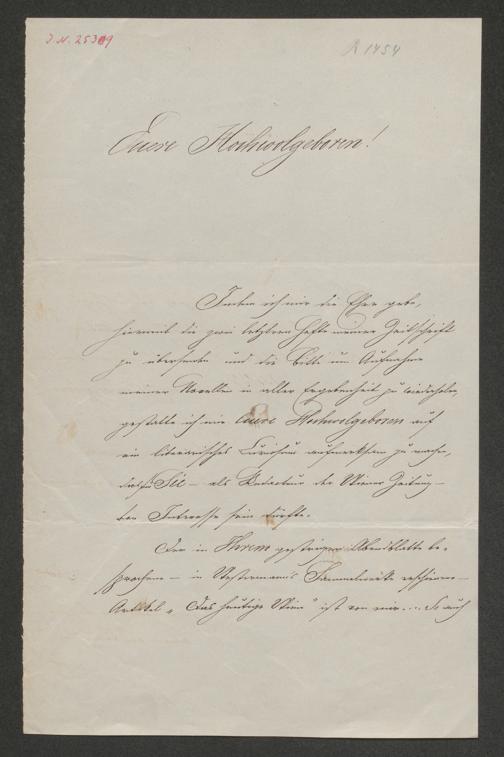 J.N. 25309
R 1454
Euere Hochwolgeboren!
Indem ich mir die Ehre gebe,
hiermit die zwei letzten Hefte meiner Zeitschrift
zu übersenden und die Bitte um Aufnahme
meiner Novellen in aller Ergebenheit zu wiederholen,
gestatte ich mir Euere Hochwolgeboren auf
ein literarisches Curiosum aufmerksam zu machen,
das für Sie – als Redacteur der Wiener Zeitung –
von Interesse sein dürfte.
Der in Ihrem gestrigen Abendblatte be-
sprochene – in Westermann's Sammelwerke erschienene –
Artikel „Das heutige Wien" ist von mir.... So auch